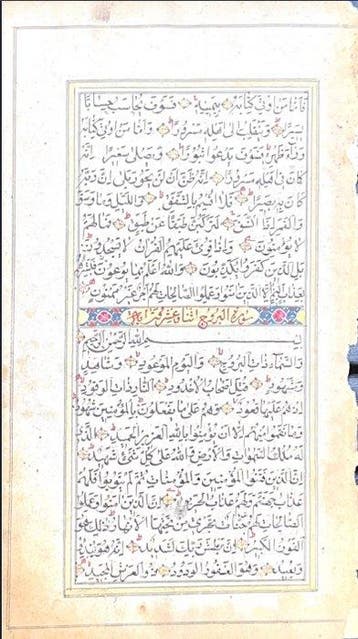 فَأَمَّا مَنْ أُوتِيَ كِتَابَهُ بِيَمِينِهِ فَسَوْفَ يُحَاسَبُ حِسَابًا
يَسِيرًا وَيَنْقَلِبُ إِلَى أَهْلِهِ مَسْرُورًا وَأَمَّا مَنْ أُوتِيَ كِتَابَهُ
وَرَاءَ ظَهْرِهِ فَسَوْفَ يَدْعُوا ثُبُورًا وَيَصْلَى سَعِيرًا إِنَّهُ
كَانَ فِي أَهْلِهِ مَسْرُورًا إِنَّهُ ظَنَّ أَنْ لَنْ يَحُورَ بَلَى إِنَّ رَبَّهُ
كَانَ بِهِ بَصِيرًا فَلَا أُقْسِمُ بِالشَّفَقِ وَاللَّيْلِ وَمَا وَسَقَ
وَالْقَمَرِ إِذَا اتَّسَقَ لَتَرْكَبُنَّ طَبَقًا عَنْ طَبَقٍ فَمَا لَهُمْ
لَا يُؤْمِنُونَ وَإِذَا قُرِئَ عَلَيْهِمُ الْقُرْآنُ لَا يَسْجُدُونَ
بَلِ الَّذِينَ كَفَرُوا يُكَذِّبُونَ وَاللَّهُ أَعْلَمُ بِمَا يُوعُونَ فَبَشِّرْهُمْ
بِعَذَابٍ أَلِيمٍ إِلَّا الَّذِينَ آمَنُوا وَعَمِلُوا الصَّالِحَاتِ لَهُمْ أَجْرٌ غَيْرُ مَمْنُونٍ
سورة البروج
بِسْمِ اللَّهِ الرَّحْمَنِ الرَّحِيمِ
وَالسَّمَاءِ ذَاتِ الْبُرُوجِ وَالْيَوْمِ الْمَوْعُودِ وَشَاهِدٍ
وَمَشْهُودٍ قُتِلَ أَصْحَابُ الْأُخْدُودِ النَّارِ ذَاتِ الْوَقُودِ
إِذْ هُمْ عَلَيْهَا قُعُودٌ وَهُمْ عَلَى مَا يَفْعَلُونَ بِالْمُؤْمِنِينَ شُهُودٌ
وَمَا نَقَمُوا مِنْهُمْ إِلَّا أَنْ يُؤْمِنُوا بِاللَّهِ الْعَزِيزِ الْحَمِيدِ الَّذِي
لَهُ مُلْكُ السَّمَوَاتِ وَالْأَرْضِ وَاللَّهُ عَلَى كُلِّ شَيْءٍ شَهِيدٌ
إِنَّ الَّذِينَ فَتَنُوا الْمُؤْمِنِينَ وَالْمُؤْمِنَاتِ ثُمَّ لَمْ يَتُوبُوا فَلَهُمْ
عَذَابُ جَهَنَّمَ وَلَهُمْ عَذَابُ الْحَرِيقِ إِنَّ الَّذِينَ آمَنُوا وَعَمِلُوا
الصَّالِحَاتِ لَهُمْ جَنَّاتٌ تَجْرِي مِنْ تَحْتِهَا الْأَنْهَارُ ذَلِكَ هُوَ
الْفَوْزُ الْكَبِيرُ إِنَّ بَطْشَ رَبِّكَ لَشَدِيدٌ إِنَّهُ هُوَ يُبْدِئُ
وَيُعِيدُ وَهُوَ الْغَفُورُ الْوَدُودُ ذُو الْعَرْشِ الْمَجِيدُ